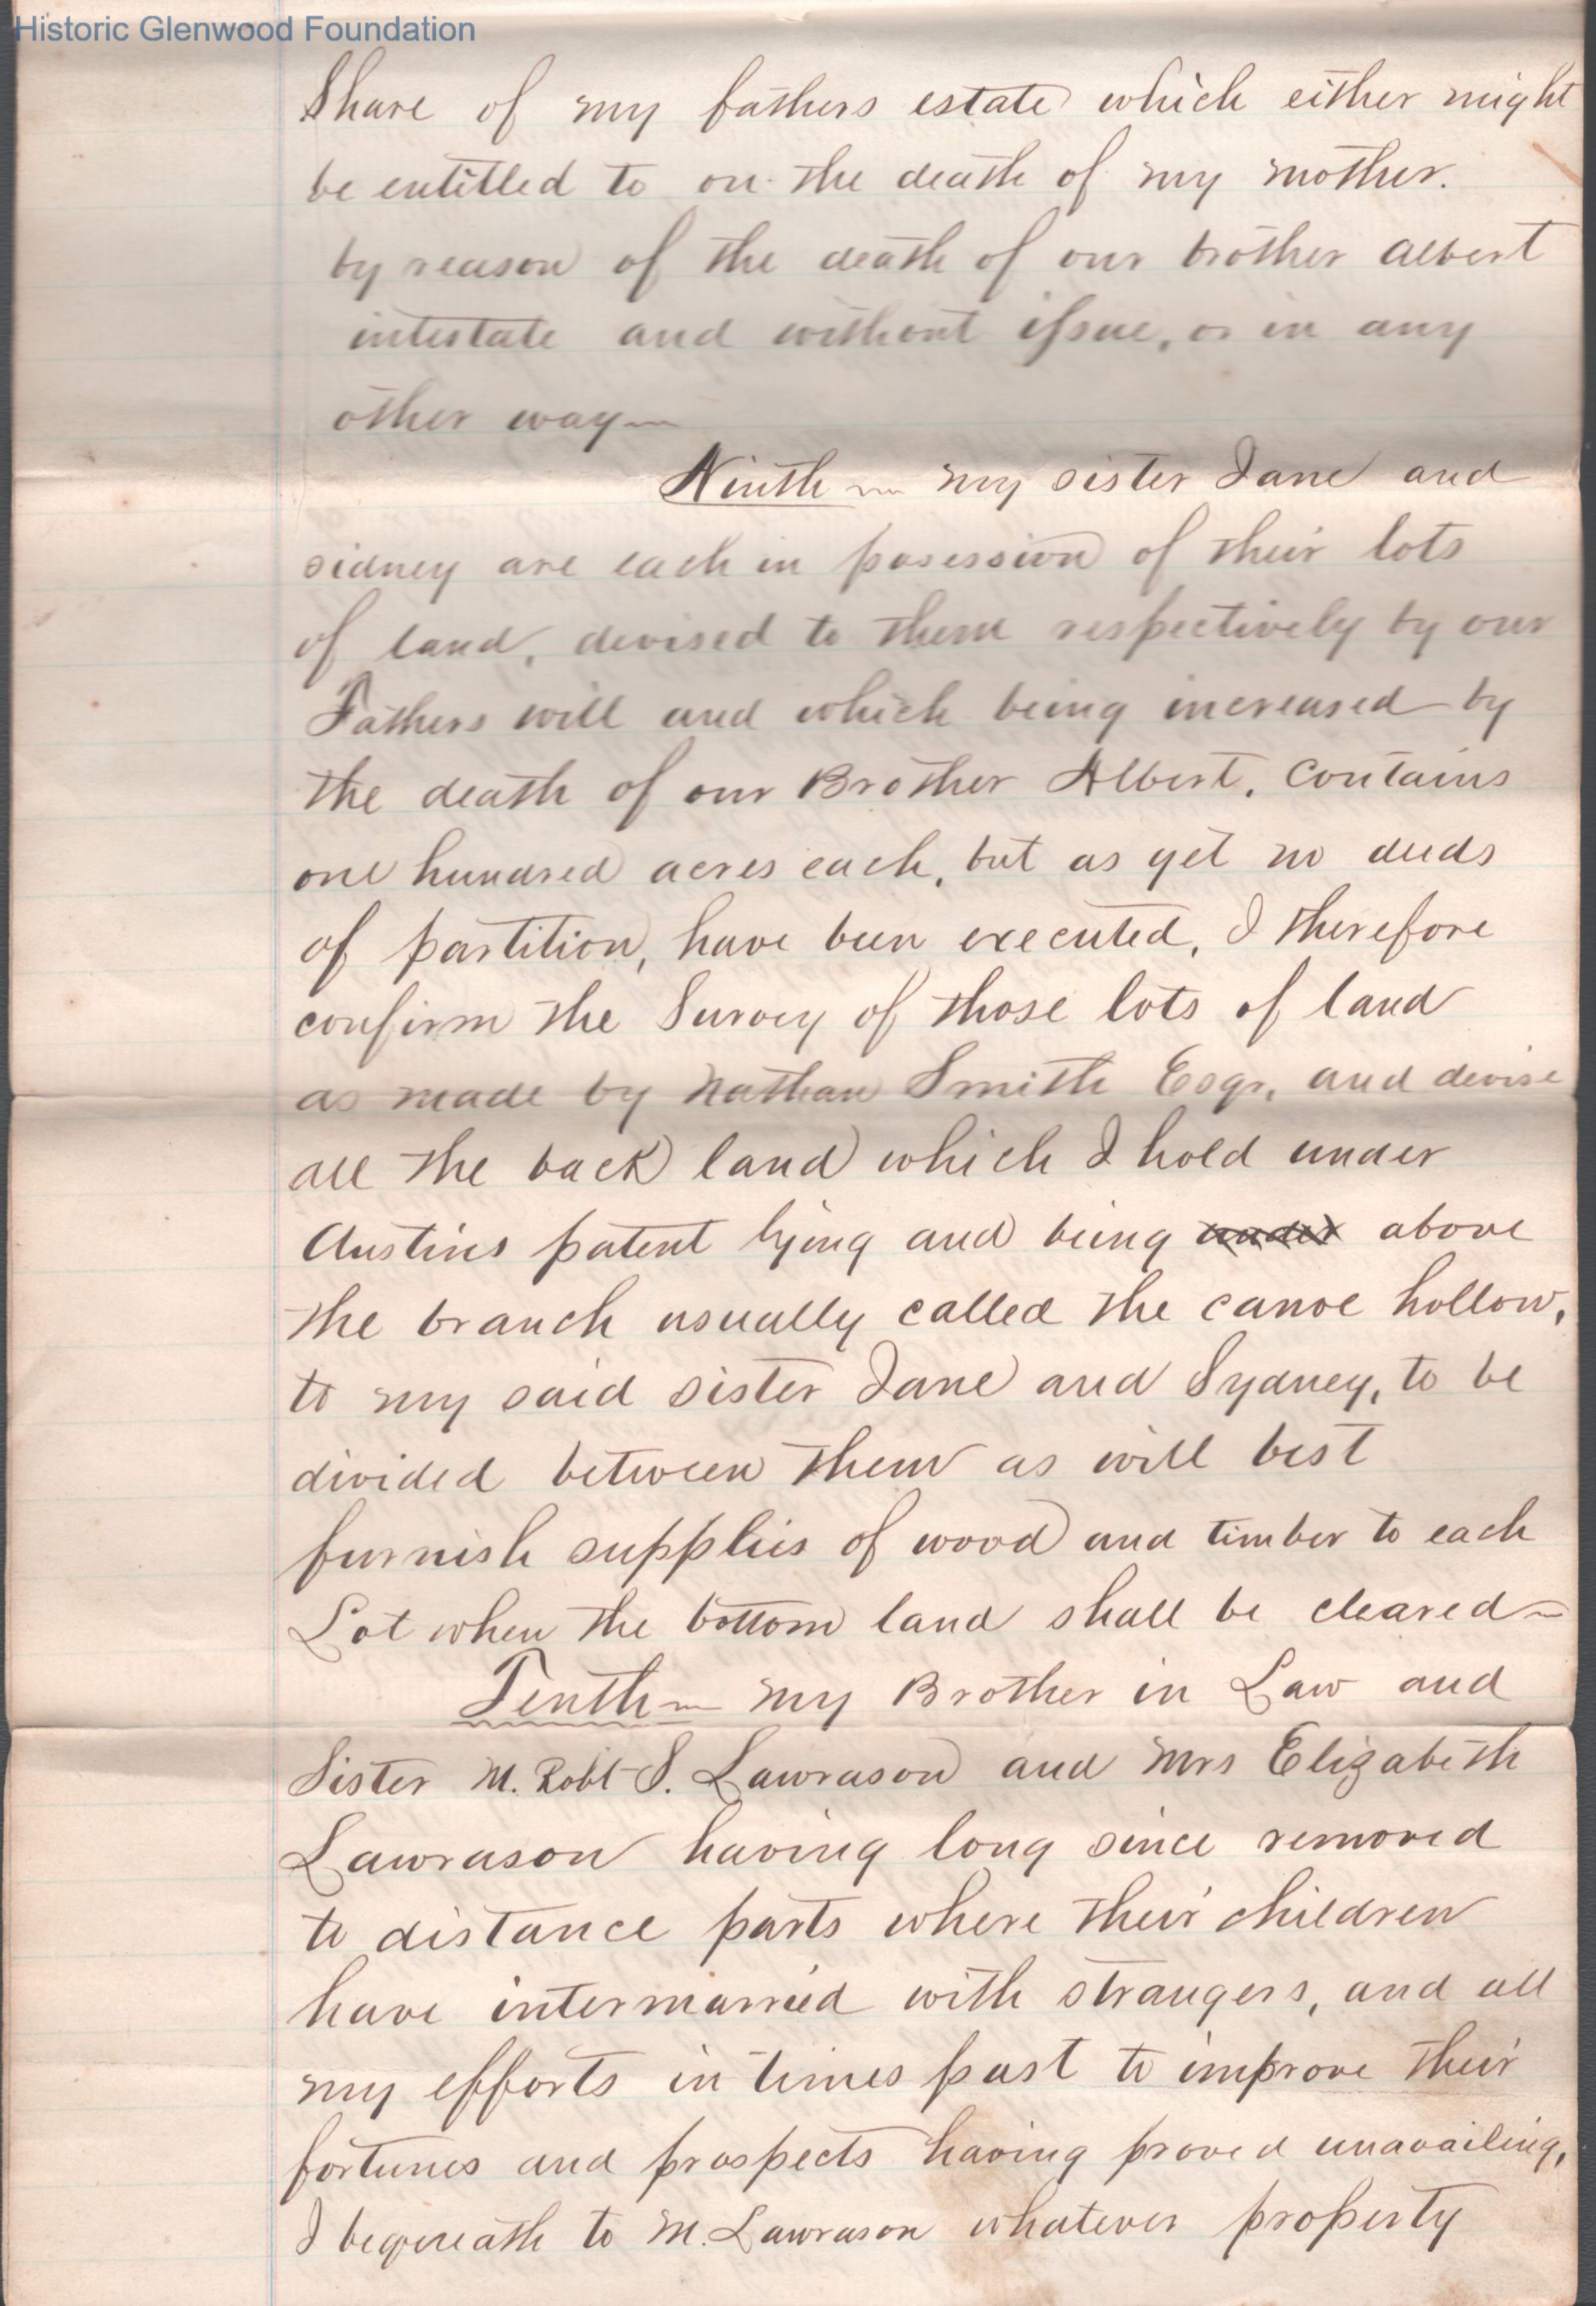 Historic Glenwood Foundation
Share of my fathers estate which either might
be entitled to on the death of my mother.
by reason of the death of our brother Albert
intestate and without issue, or in any
other way—
Ninth — my sister Jane and
sidney are each in posession of their lots
of land, devised to them respectively by our
Fathers will and which being increased by
the death of our Brother Albert. Contains
one hundred acres each, but as yet no deeds
of partition, have been executed, I therefore
confirm the Survey of those lots of land
as made by Nathan Smith Esqr, and devise
all the back land which I hold under
Austins patent lying and being under above
the branch usually called the canoe hollow,
to my said sister Jane and Sydney, to be
divided between them as will best
furnish supplies of wood and timber to each
Lot when the bottom land shall be cleared—
Tenth — my Brother in Law and
Sister M. Robt S. Lawrason and Mrs Elizabeth
Lawrason having long since removed
to distance parts where their children
have intermarried with strangers, and all
my efforts in times past to improve their
fortunes and prospects having proved unavailing,
I bequeath to M. Lawrason whatever property